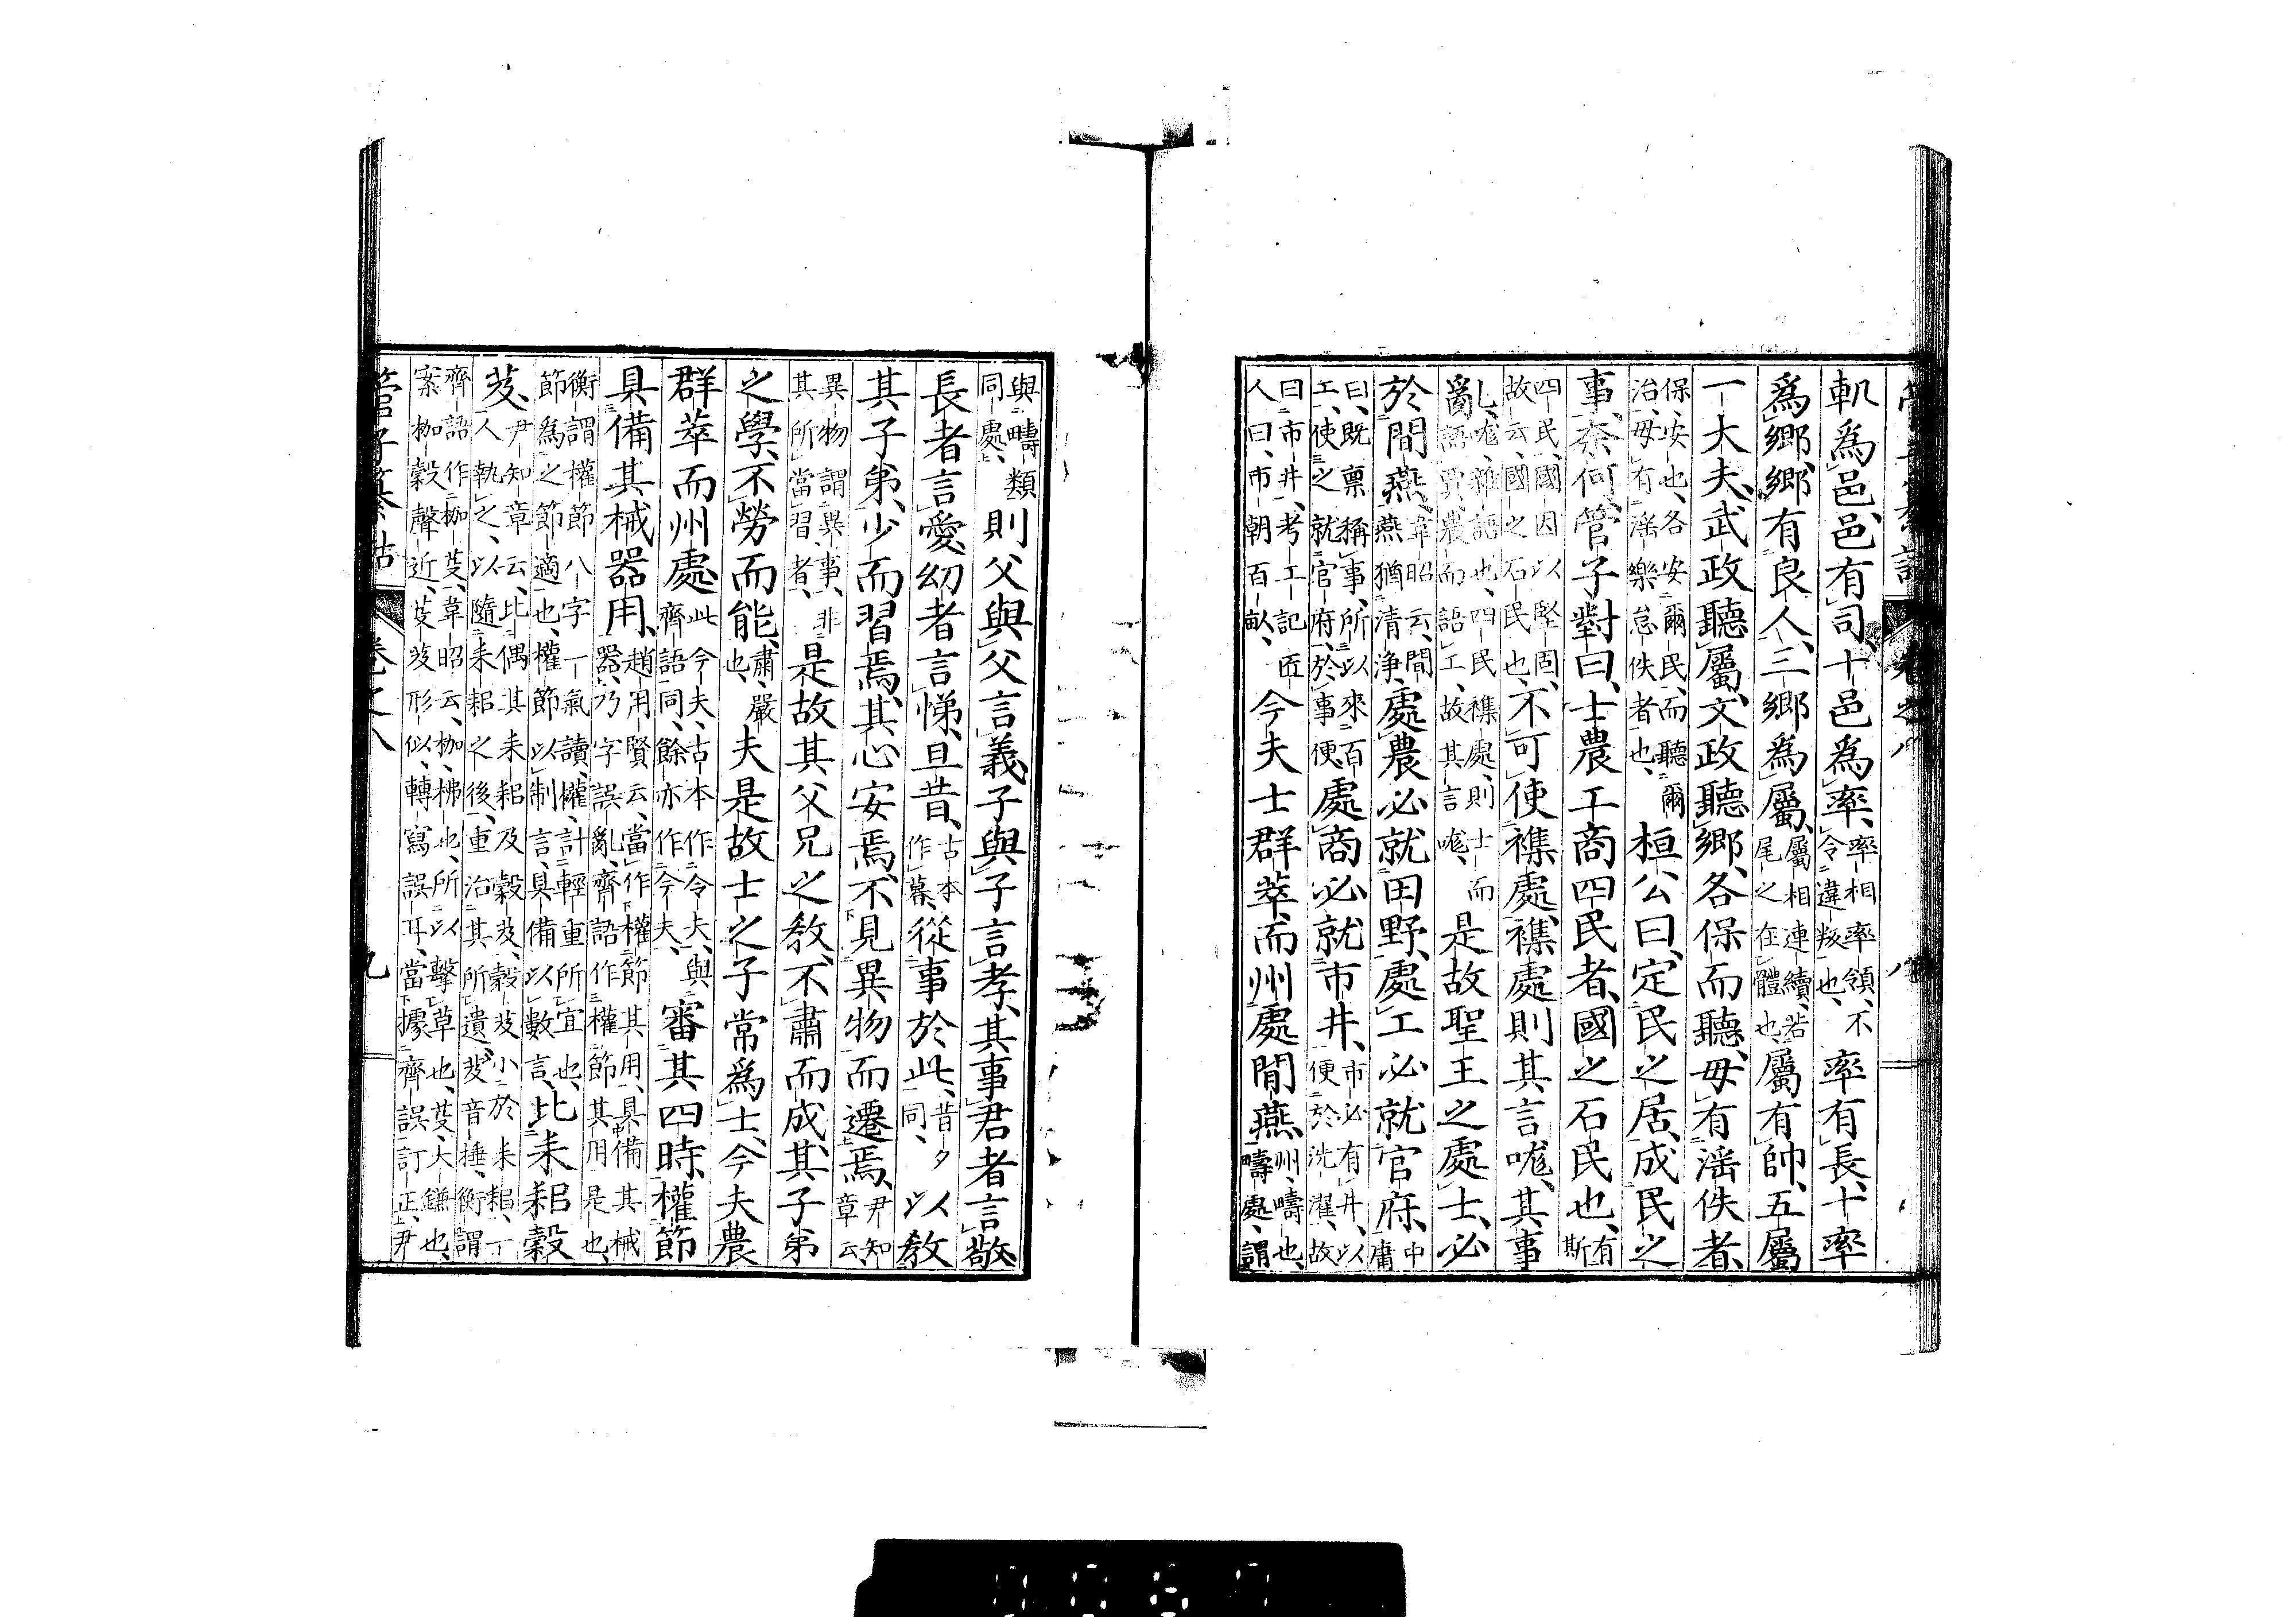 管子纂詁 卷之八 八
軌爲邑、邑有司、十邑爲率、率相率領、不令違叛也、率有長、十率
爲鄉、鄉有良人、三鄉爲屬、屬相連續、若尾之在體也、屬有帥、五屬
一大夫、武政聽屬、文政聽鄉、各保而聽、毋有淫佚者、
保、安也、各安爾民、而聽爾治、毋有淫樂怠佚者也、桓公曰、定民之居、成民之
事、奈何、管子對曰、士農工商四民者、國之石民也、有斯
四民、國因以堅固、故云國之石民也、不可使襍處、襍處則其言哤、其事
亂、哤、雜語也、四民襍處、則士而語賈、農而語工、故其言哤、是故聖王之處士、必
於閒燕、韋昭云、閒燕猶清淨、處農必就田野、處工必就官府、中庸
曰、既稟稱事、所以來百工、使之就官府、於事便、處商必就市井、市必有井、以便於洗濯、故
曰市井、考工記匠人曰、市朝百畝、今夫士群萃、而州處閒燕、州、疇也、疇處、謂
與疇類同處、則父與父言義、子與子言孝、其事君者言敬、
長者言愛、幼者言悌、旦昔、古本作暮、從事於此、昔夕同、以敎
其子弟、少而習焉、其心安焉、不見異物而遷焉、尹知章云、
異物謂異事、非其所當習者、是故其父兄之敎、不肅而成、其子弟
之學、不勞而能、肅、嚴也、夫是故士之子常爲士、今夫農
群萃而州處、此今夫、古本作令夫、與齊語同、餘亦作今夫、審其四時、權節
具備其械器用、趙用賢云、當作權節其用、具備其械器、乃字誤亂、齊語作權節其用是也、
衡謂權節八字一氣讀、權、計輕重所宜也、節爲之節適也、權節以制言、具備以數言、比耒耜穀
芨、尹知章云、比偶其耒耜及穀芨、穀芨小於耒耜、一人執之、以隨耒耜之後、重治其所遺、芨音捶、衡謂
齊語作枷芟、韋昭云、枷、梻也、所以擊草也、芟、大鎌也、案枷穀聲近、芟芨形似、轉寫誤耳、當據齊語訂正、尹
管子纂詁 卷之八 九